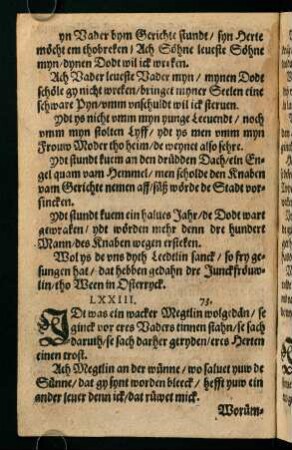 yn Vader bym Gerichte stundt / syn Herte
möcht em thobreken / Ach Söhne leueste Söhne
myn / dynen Dodt wil ick wreken.
Ach Vader leueste Vader myn / mynen Dodt
schöle gy nicht wreken / bringet myner Seelen eine
schware Pyn / vmm vnschuldt wil ick steruen.
Ydt ys nicht vmm myn junge Leeuendt / noch
vmm myn stolten Lyff / ydt ys men vmm myn
Frouw Moder tho heim / de weynet also sehre.
Ydt stundt kuem an den drüdden Dach / ein En-
gel quam vam Hemmel / men scholde den Knaben
vam Gerichte nemen aff / süß wörde de Stadt vor-
sincken.
Ydt stundt kuem ein halues Jahr / de Dodt wart
gewraken / ydt wörden mehr denn dre hundert
Mann / des Knaben wegen ersteken.
Wol ys de vns dych Leedtlin sanck / so fry ge-
sungen hat / dat hebben gedahn dre Junckfröuw-
lin / tho Ween in Osterryck.
LXXIII. 73.
IDt was ein wacker Megtlin wolgedän / se
ginck vor eres Vaders tinnen stahn / se sach
daruth / se sach darher geryden / eres Herten
einen trost.
Ach Megtlin an der wünne / wo saluet yuw de
Sünne / dat gy synt worden bleeck / hefft yuw ein
ander leuer denn ick / dat rüwet mick.
Worüm-